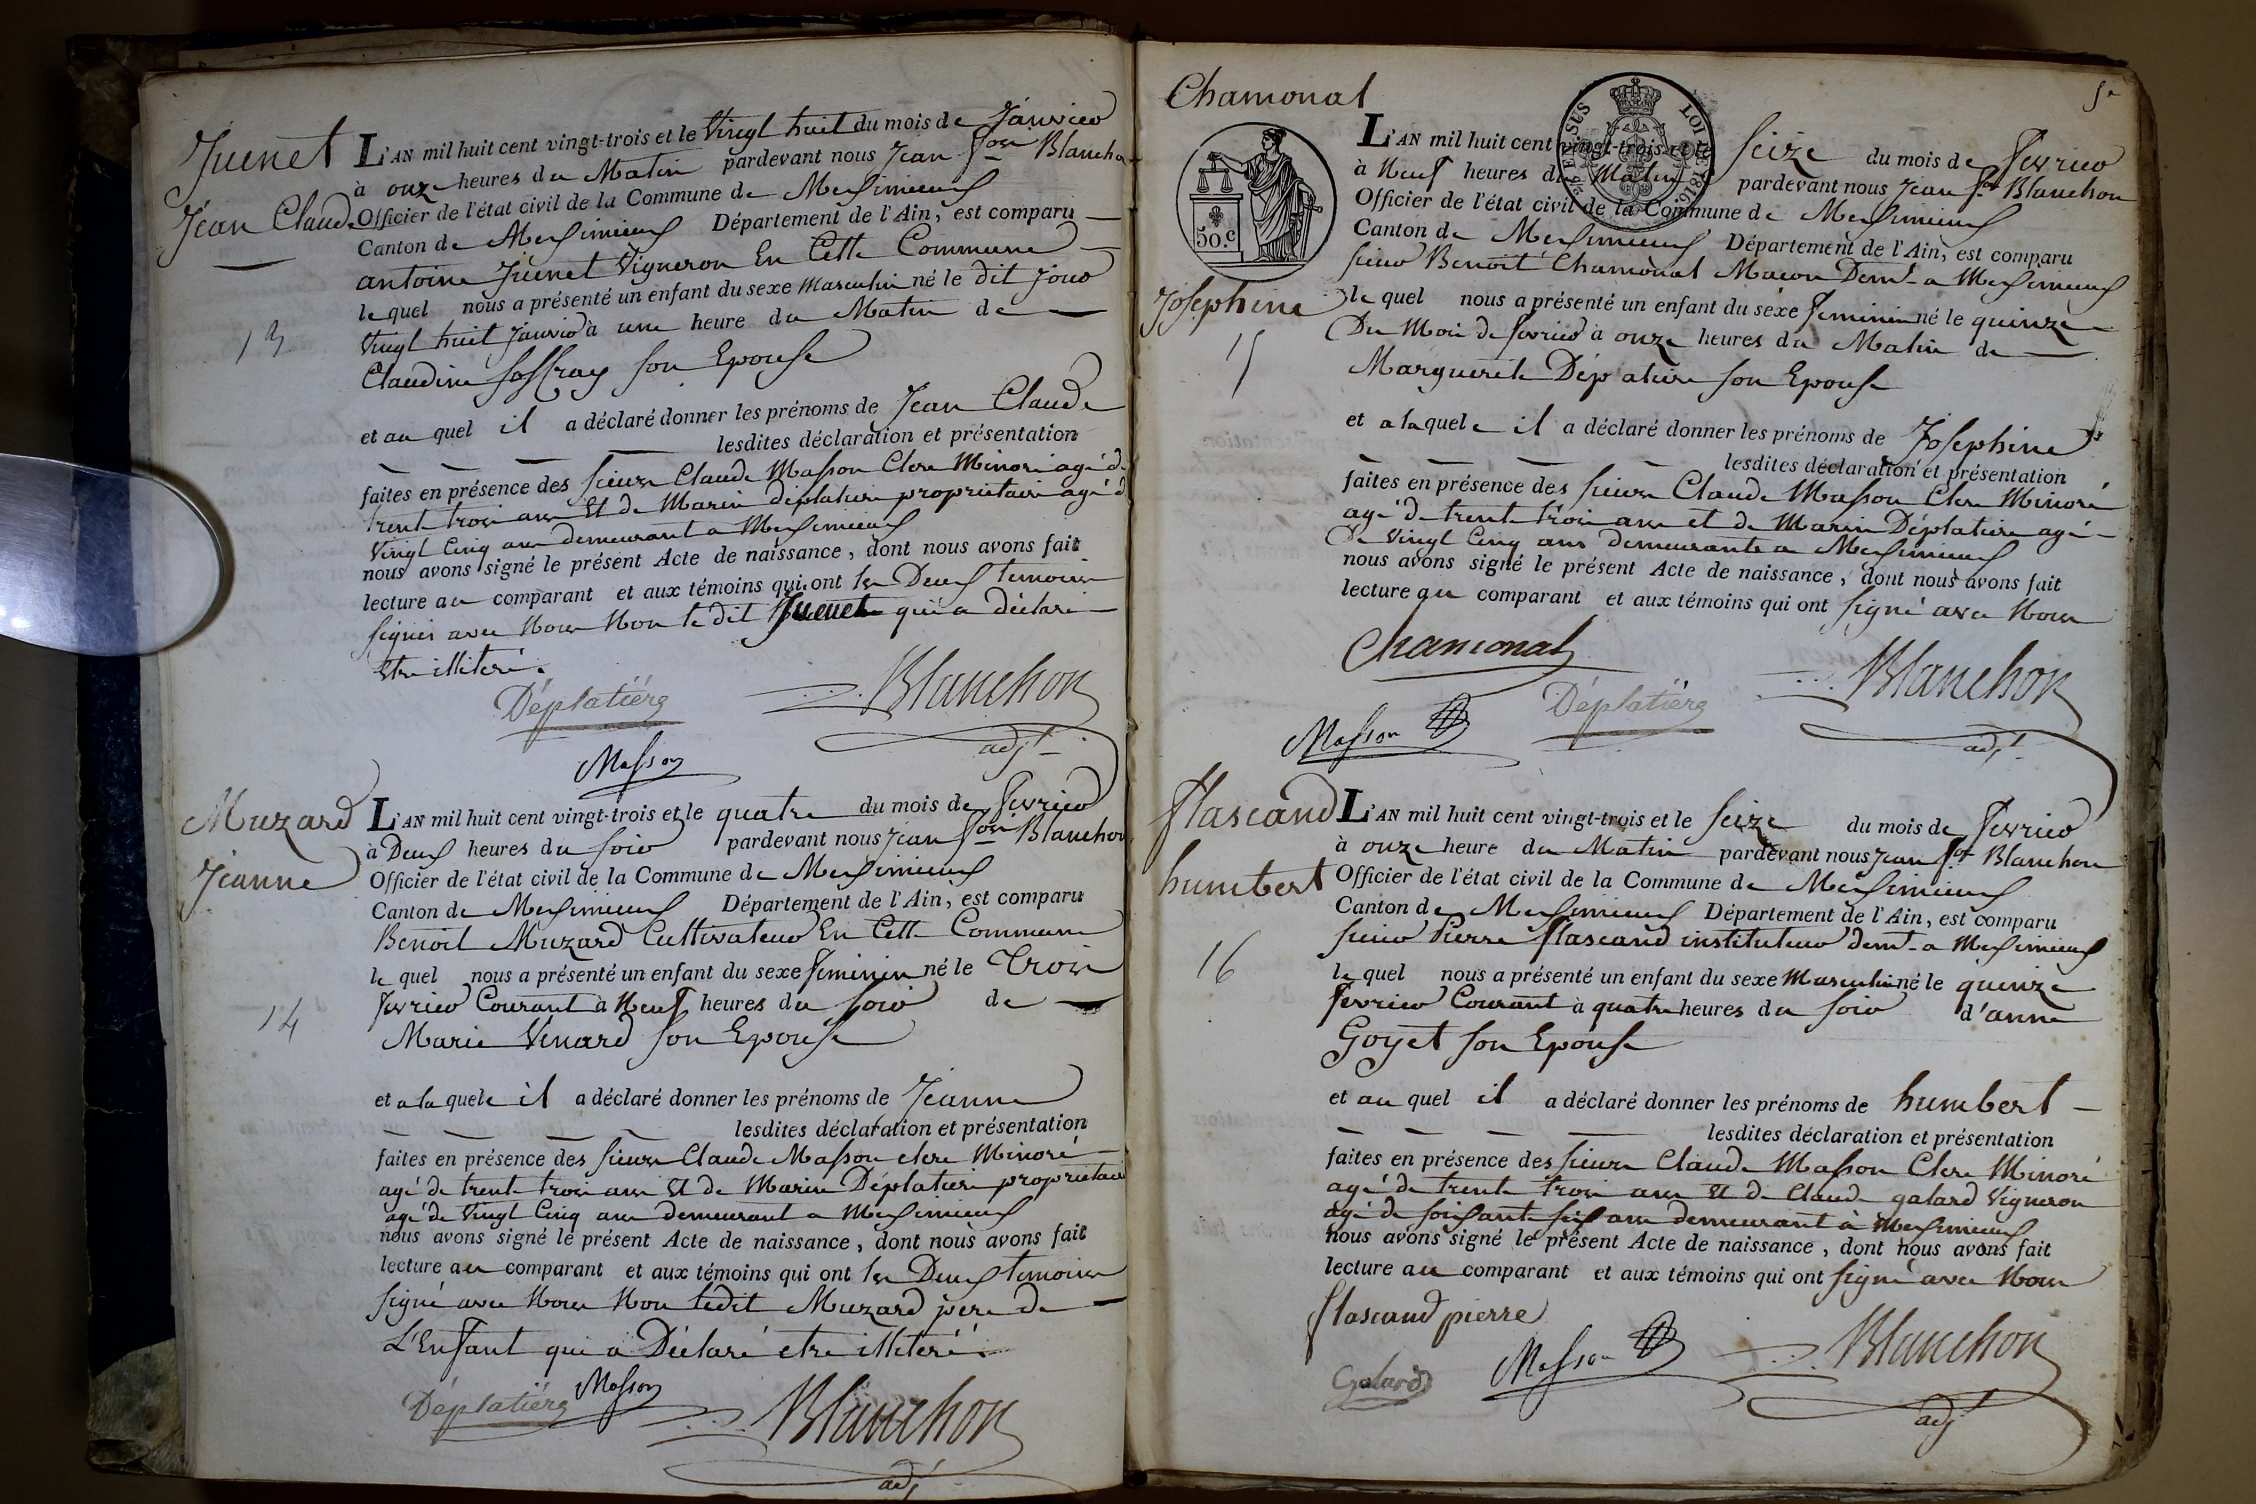 Juenet
Jean Claude
13
L'AN mil huit cent vingt-trois et le Vingt huit du mois de Janvier
à onze heures du Matin pardevant nous Jean fois Blanchon
Officier de l'état civil de la Commune de Messimieux
Canton de Messimieux Département de l'Ain, est comparu
antoine Juenet Vigneron En Cette Commune
le quel nous a présenté un enfant du sexe Masculin né le dit Jour
Vingt huit Janvier à une heure du Matin de
Claudine son Epouse
et au quel il a déclaré donner les prénoms de Jean Claude
lesdites déclaration et présentation
faites en présence des sieurs Claude Masson Clerc Minoré agé de
trente trois ans Et de Marin déplatière propriétaire agé de
Vingt Cinq ans demeurant a Messimieux
nous avons signé le présent Acte de naissance, dont nous avons fait
lecture au comparant et aux témoins qui ont les Deux temoins
signés avec Nous Non le dit Juenet qui a déclaré
Etre illiteré.
Déplatière
Blanchon
adjt
Masson
Muzard
Jeanne
14
L'AN mil huit cent vingt-trois et le quatre du mois de fevrier
à Deux heures du soir pardevant nous Jean fois Blanchon
Officier de l'état civil de la Commune de Messimieux
Canton de Messimieux Département de l'Ain, est comparu
Benoit Muzard Cultivateur En Cette Commune
le quel nous a présenté un enfant du sexe feminin né le Trois
fevrier Courant à Neuf heures du soir de
Marie Venard son Epouse
et a la quele il a déclaré donner les prénoms de Jeanne
lesdites déclaration et présentation
faites en présence des sieurs Claude Masson clerc Minoré
agé de trente trois ans Et de Marin Déplatière propriétaire
agé de Vingt Cinq ans demeurant a Messimieux
nous avons signé le présent Acte de naissance, dont nous avons fait
lecture au comparant et aux témoins qui ont les Deux temoins
signé avec Nous Non ledit Muzard père de
L'Enfant qui a Déclaré etre illiteré.
Déplatière
Masson
Blanchon
adj
5e
Chamonal
Josephine
15
50.c
LOI DE 1816
L'AN mil huit cent vingt-trois et le Seize du mois de fevrier
à Neuf heures du Matin pardevant nous Jean fois Blanchon
Officier de l'état civil de la Commune de Messimieux
Canton de Messimieux Département de l'Ain, est comparu
sieur Benoit Chamonal Macon Demt a Messimieux
le quel nous a présenté un enfant du sexe feminin né le quinze
Du Mois de fevrier à onze heures du Matin de
Marguerite Déplatière son Epouse
et a la quele il a déclaré donner les prénoms de Josephine
lesdites déclaration et présentation
faites en présence des sieurs Claude Masson Clerc Minoré
agé de trente trois ans et de Marin Déplatière agé
De Vingt Cinq ans demeurants a Messimieux
nous avons signé le présent Acte de naissance, dont nous avons fait
lecture au comparant et aux témoins qui ont signé avec Nous
Chamonal
Blanchon
Déplatière
Masson
adjt
flascaud
humbert
16
L'AN mil huit cent vingt-trois et le Seize du mois de fevrier
à onze heure du Matin pardevant nous Jean fois Blanchon
Officier de l'état civil de la Commune de Messimieux
Canton de Messimieux Département de l'Ain, est comparu
sieur Pierre flascaud instituteur demt a Messimieux
le quel nous a présenté un enfant du sexe Masculin né le quinze
fevrier Courant à quatre heures du soir d'anne
Goyet son Epouse
et au quel il a déclaré donner les prénoms de humbert
lesdites déclaration et présentation
faites en présence des sieurs Claude Masson Clerc Minoré
agé de trente trois ans Et de Claude galard Vigneron
agé de soixante six ans demeurant à Messimieux
nous avons signé le présent Acte de naissance, dont nous avons fait
lecture au comparant et aux témoins qui ont signé avec Nous
flascaud pierre
Galard
Masson
Blanchon
adj